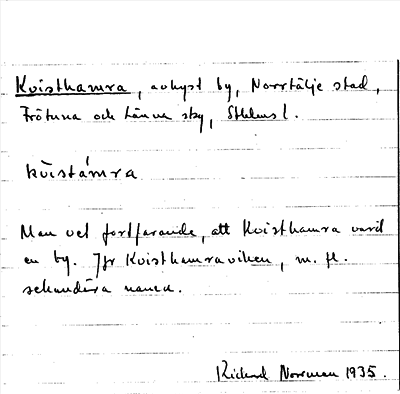 Kvisthamra, avhyst by, Norrtälje stad,
Frötuna och Länna sky, Sthlms l.
kvistámra
Man vet fortfarande, att Kvisthamra varit
en by. Jfr Kvisthamraviken, m. fl.
sekundära namn.
Rickard Norrman 1935.